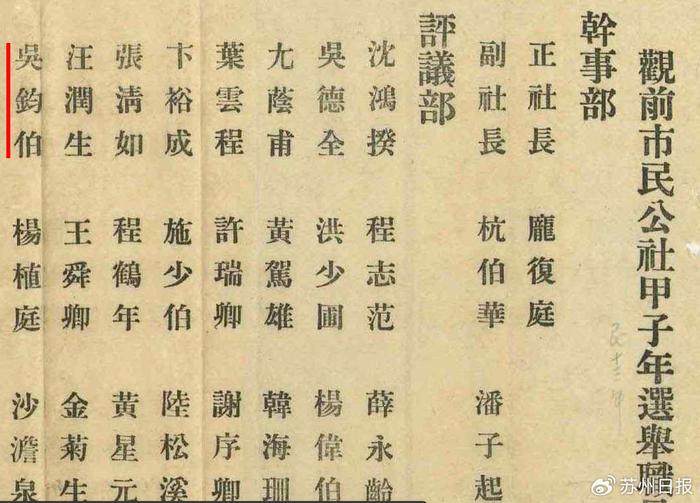 觀前市民公社甲子年選舉職
民十三年
幹事部
正社長 龐復庭
副社長 杭伯華 潘子起
評議部
沈鴻揆 程志范 薛永齡
吳德全 洪少圃 楊偉伯
尢蔭甫 黃駕雄 韓海珊
葉雲程 許瑞卿 謝序卿
卞裕成 施少伯 陸松溪
張清如 程鶴年 黃星元
汪潤生 王舜卿 金菊生
吳鈞伯 楊植庭 沙澹泉
苏州日报